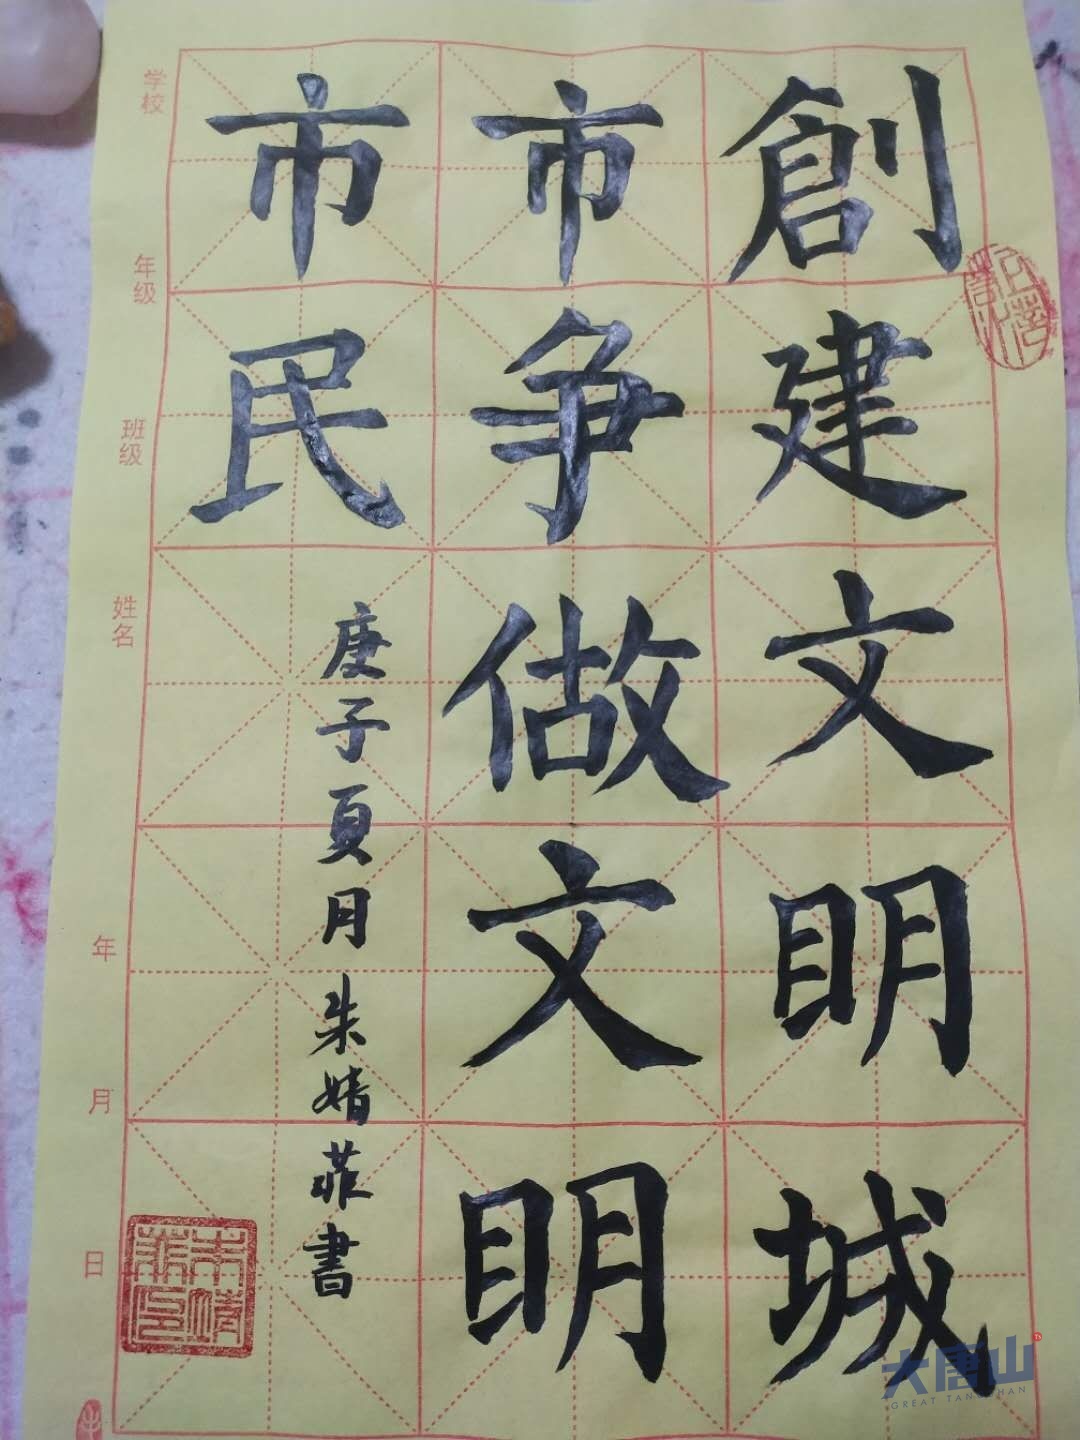 創建文明城
市争做文明
市民
庚子夏月朱婧菲書
学校
年级
班级
姓名
年
月
日
大唐山
GREAT TANGSHAN